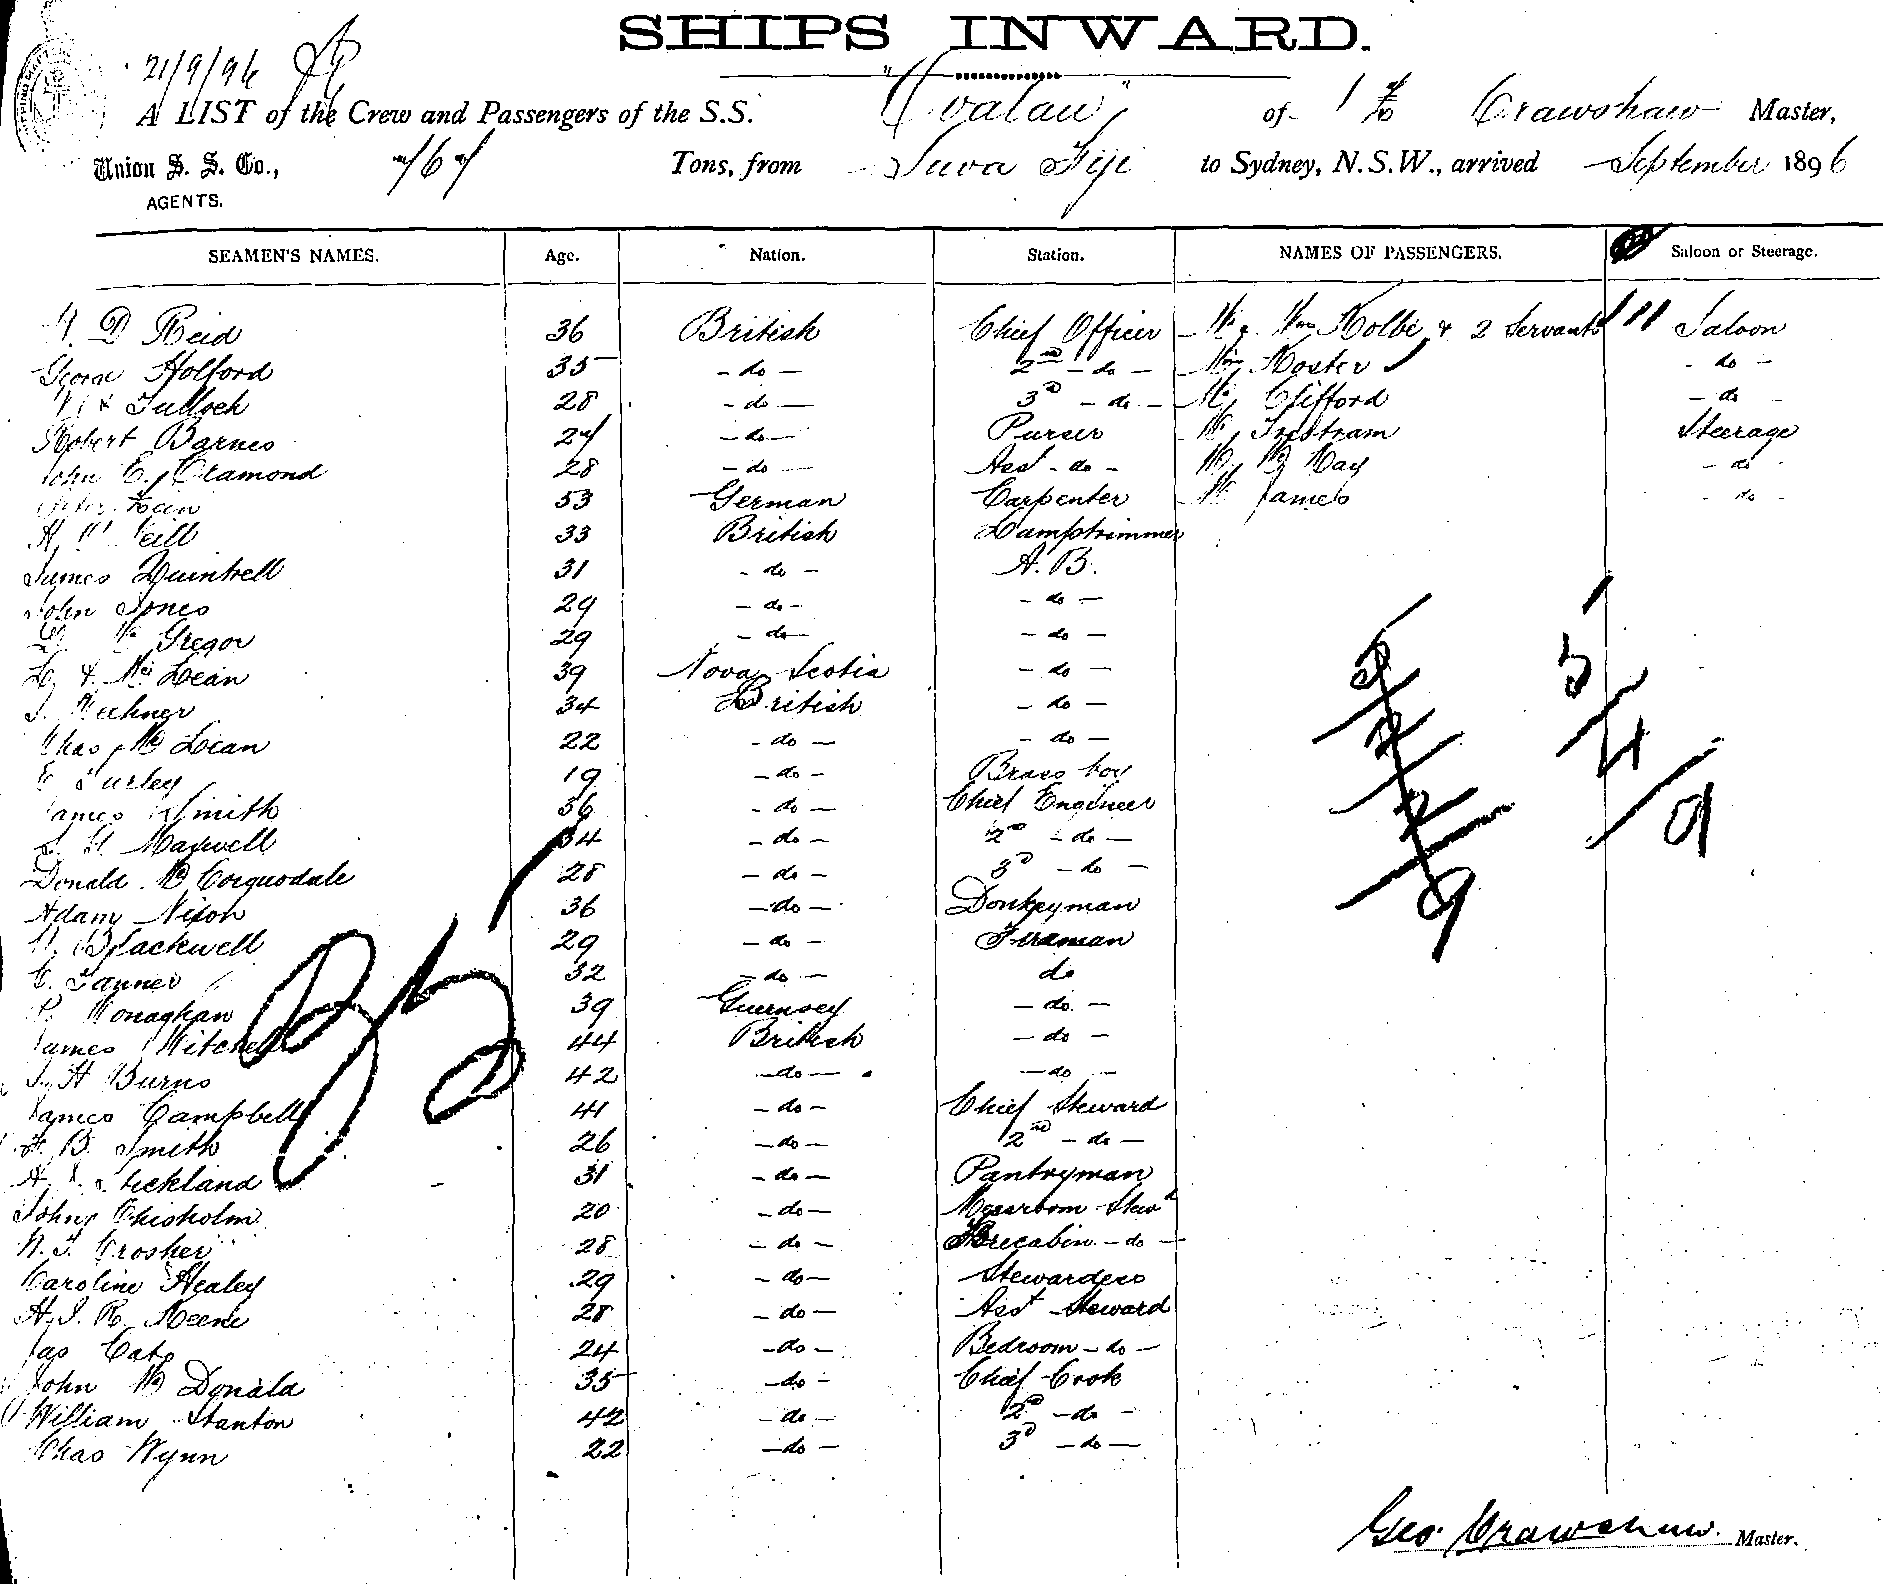 SHIPS INWARD.
21/9/96
A LIST of the Crew and Passengers of the S.S. "Ovalau" of Crawshaw Master,
Union S. S. Co., 767 Tons, from Suva Fiji to Sydney, N.S.W., arrived September 1896
AGENTS.
SEAMEN'S NAMES. Age. Nation. Station. NAMES OF PASSENGERS. Saloon or Steerage.
D Reid 36 British Chief Officer & 2 Servants Saloon
George Holford 35 - do - 2nd - do - Koster - do -
Tulloch 28 - do - 3D - do - Mr Clifford - do -
Robert Barnes 27 - do - Purser Mr Tristram Steerage
John E. Cramond 28 - do - Asst - do - May - do -
53 German Carpenter Mr James - do -
33 British Lamptrimmer
James Quintrell 31 - do - A. B.
John Jones 29 - do - - do -
Mc Gregor 29 - do - - do -
Mc Lean 39 Nova Scotia - do -
34 British - do -
Chas Mc Lean 22 - do - - do -
E Turley 19 - do - Brass boy
James Smith 36 - do - Chief Engineer
Maxwell 34 - do - 2nd - do -
Donald Mc Corquodale 28 - do - 3D - do -
Adam Nixon 36 - do - Donkeyman
Blackwell 29 - do - Fireman
E. Tanner 32 - do - do
P. Monaghan 39 Guernsey - do -
James Mitchell 44 British - do -
J. H Burns 42 - do - - do -
James Campbell 41 - do - Chief Steward
B. Smith 26 - do - 2nd - do -
Stickland 31 - do - Pantryman
John Chisholm 20 - do - Messroom Stewd
Crosher 28 - do - Forecabin - do -
Caroline Healey 29 - do - Stewardess
28 - do - Asst Steward
Jas Cato 24 - do - Bedroom - do -
John Mc Donald 35 - do - Chief Cook
William Stanton 42 - do - 2nd - do -
Chas Wynn 22 - do - 3D - do -
5
4
9
Geo. Crawshaw Master.